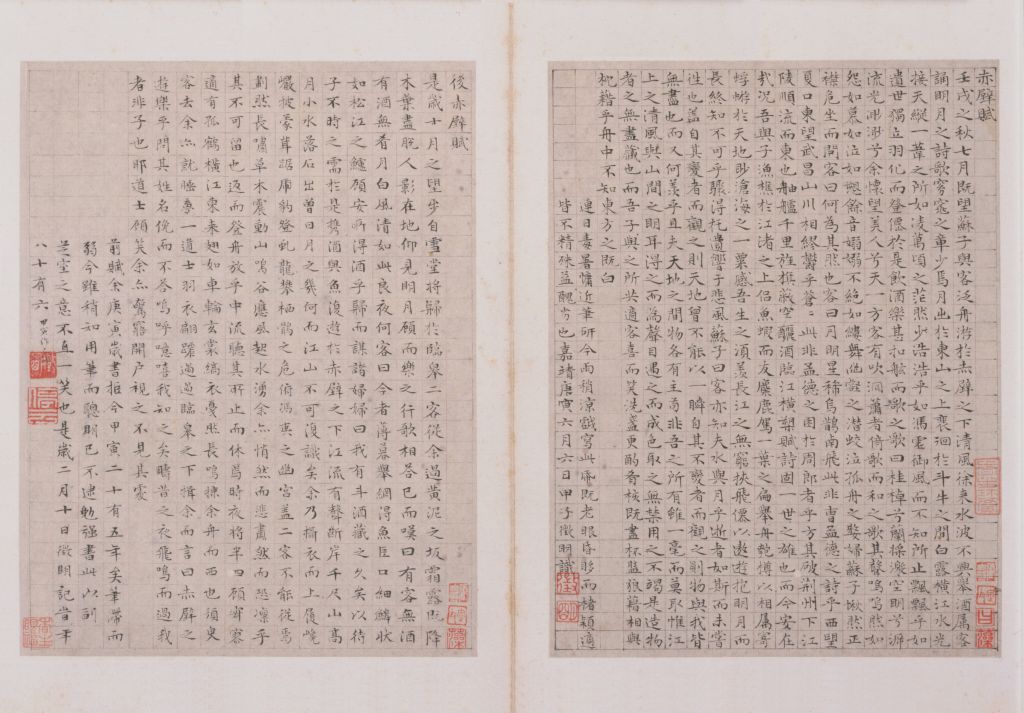 赤壁賦
壬戌之秋七月既望蘇子與客泛舟游於赤壁之下清風徐來水波不興舉酒屬客
誦明月之詩歌窈窕之章少焉月出於東山之上裵徊於斗牛之間白露橫江水光
接天縱一葦之所如凌萬頃之茫然浩浩乎如馮虛御風而不知所止飄飄乎如
遺世獨立羽化而登僊於是飲酒樂甚扣舷而歌之歌曰桂棹兮蘭槳擊空明兮泝
流光渺渺兮余懷望美人兮天一方客有吹洞簫者倚歌而和之其聲嗚嗚然如
怨如慕如泣如訴餘音嫋嫋不絕如縷舞幽壑之潛蛟泣孤舟之嫠婦蘇子愀然正
襟危坐而問客曰何為其然也客曰月明星稀烏鵲南飛此非曹孟德之詩乎西望
夏口東望武昌山川相繆鬱乎蒼蒼此非孟德之困於周郎者乎方其破荊州下江
陵順流而東也舳艫千里旌旗蔽空釃酒臨江橫槊賦詩固一世之雄也而今安在
哉況吾與子漁樵於江渚之上侶魚蝦而友麋鹿駕一葉之扁舟舉匏樽以相屬寄
蜉蝣於天地眇滄海之一粟感吾生之須臾羨長江之無窮挾飛僊以遨遊抱明月而
長終知不可乎驟得托遺響于悲風蘇子曰客亦知夫水與月乎逝者如斯而未嘗
徃也蓋自其變者而觀之則天地曾不能以一瞬自其不變者而觀之則物與我皆
無盡也而又何羨乎且夫天地之間物各有主苟非吾之所有雖一毫而莫取惟江
上之清風與山間之明月耳得之而為聲目遇之而成色取之無禁用之不竭是造物
者之無盡藏也而吾子與之所共適客喜而笑洗盞更酌肴核既盡杯盤狼藉相與
枕藉乎舟中不知東方之既白
連日毒暑慵近筆研今雨稍涼戲寫此紙既老眼昏眵而楮穎適
皆不精殊益醜劣也嘉靖庚寅六月六日甲子徵明識
後赤壁賦
是歲十月之望步自雪堂將歸於臨皋二客從余過黃泥之坂霜露既降
木葉盡脫人影在地仰見明月顧而樂之行歌相答已而嘆曰有客無酒
有酒無肴月白風清如此良夜何客曰今者薄暮舉網得魚巨口細鱗狀
如松江之鱸顧安所得酒乎歸而謀諸婦婦曰我有斗酒藏之久矣以待
子不時之需於是攜酒與魚復遊於赤壁之下江流有聲斷岸千尺山高
月小水落石出曾日月之幾何而江山不可復識矣余乃攝衣而上履巉
巖披蒙茸踞虎豹登虬龍攀栖鶻之危俯馮夷之幽宮蓋二客不能從焉
劃然長嘯草木震動山鳴谷應風起水湧余亦悄然而悲肅然而恐凜乎
其不可留也返而登舟放乎中流聽其所止而休焉時夜將半四顧寂寥
適有孤鶴橫江東來翅如車輪玄裳縞衣戛然長鳴掠余舟而西也須臾
客去余亦就睡夢一道士羽衣翩躚過臨皋之下揖余而言曰赤壁之
遊樂乎問其姓名俛而不答嗚呼噫嘻我知之矣疇昔之夜飛鳴而過我
者非子也耶道士顧笑余亦驚寤開戶視之不見其處
前賦余庚寅歲書拒今甲寅二十有五年矣筆滯而
弱今雖稍知用筆而聰明已不逮勉強書此以副
芝室之意不直一笑也是歲二月十日徵明記當年
八十有六